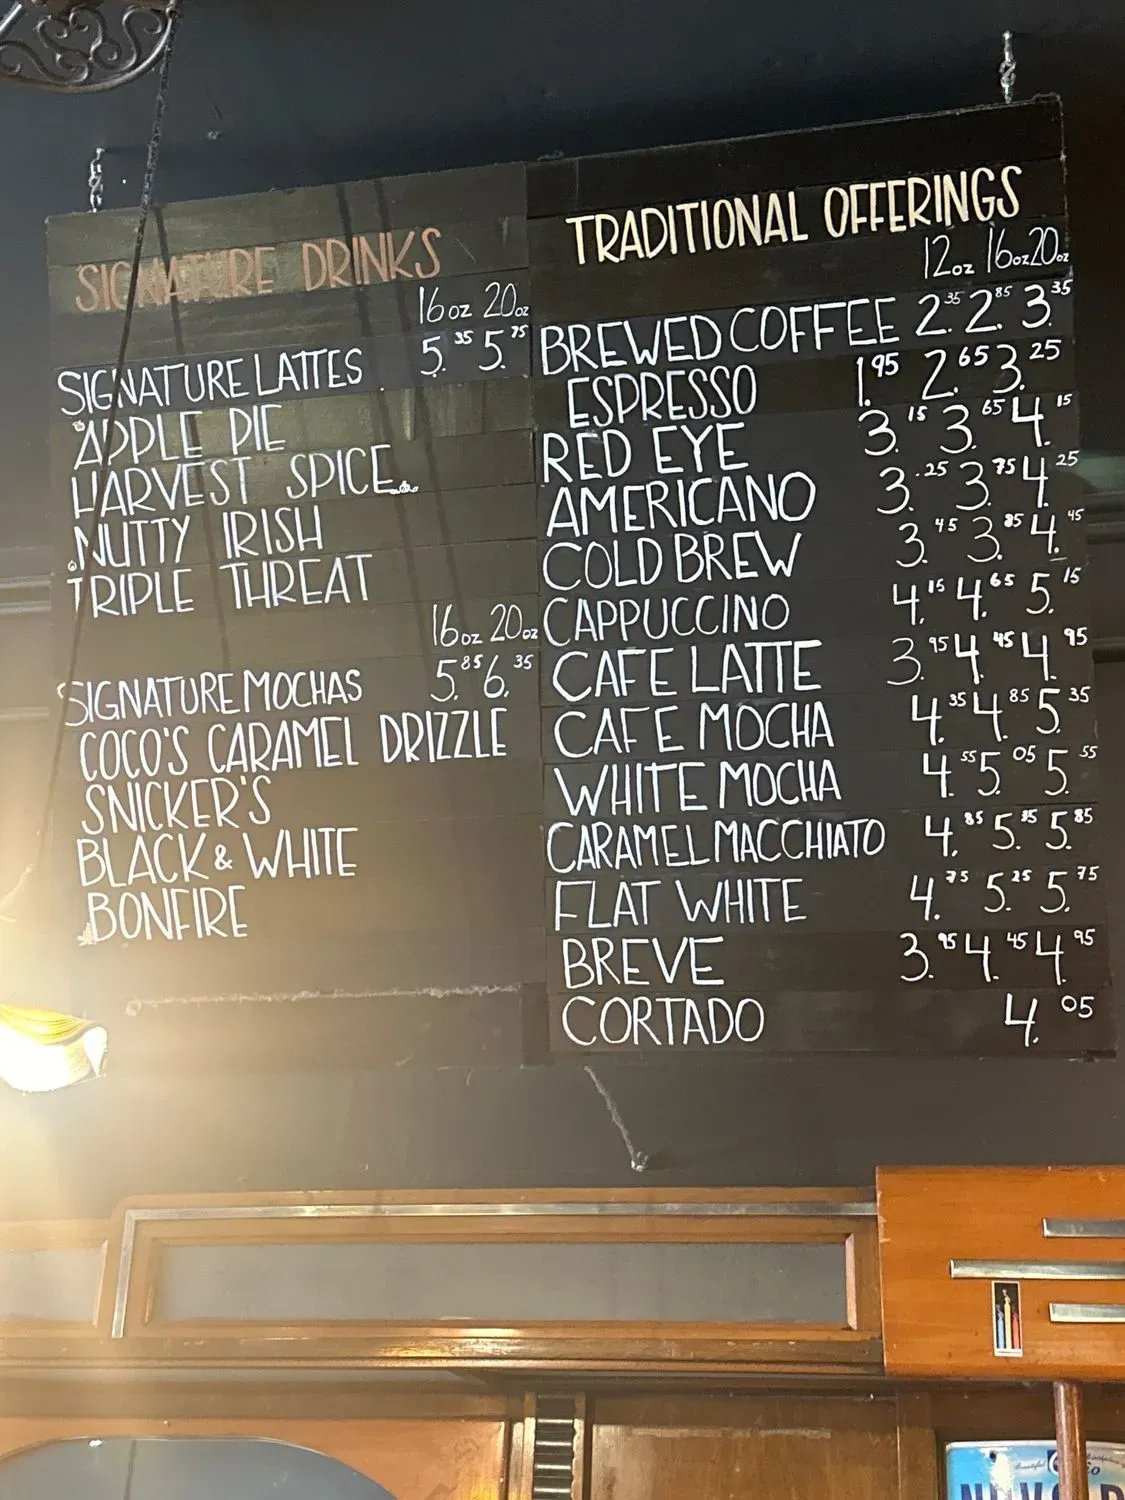 SIGNATURE DRINKS
16oz 20oz
SIGNATURE LATTES 5.35 5.75
APPLE PIE
HARVEST SPICE
NUTTY IRISH
TRIPLE THREAT
16oz 20oz
SIGNATURE MOCHAS 5.85 6.35
COCO'S CARAMEL DRIZZLE
SNICKER'S
BLACK & WHITE
BONFIRE
TRADITIONAL OFFERINGS
12oz 16oz 20oz
BREWED COFFEE 2.35 2.85 3.35
ESPRESSO 1.95 2.65 3.25
RED EYE 3.15 3.65 4.15
AMERICANO 3.25 3.75 4.25
COLD BREW 3.45 3.85 4.45
CAPPUCCINO 4.15 4.65 5.15
CAFE LATTE 3.95 4.45 4.95
CAFE MOCHA 4.35 4.85 5.35
WHITE MOCHA 4.55 5.05 5.55
CARAMEL MACCHIATO 4.85 5.35 5.85
FLAT WHITE 4.75 5.25 5.75
BREVE 3.95 4.45 4.95
CORTADO 4.05